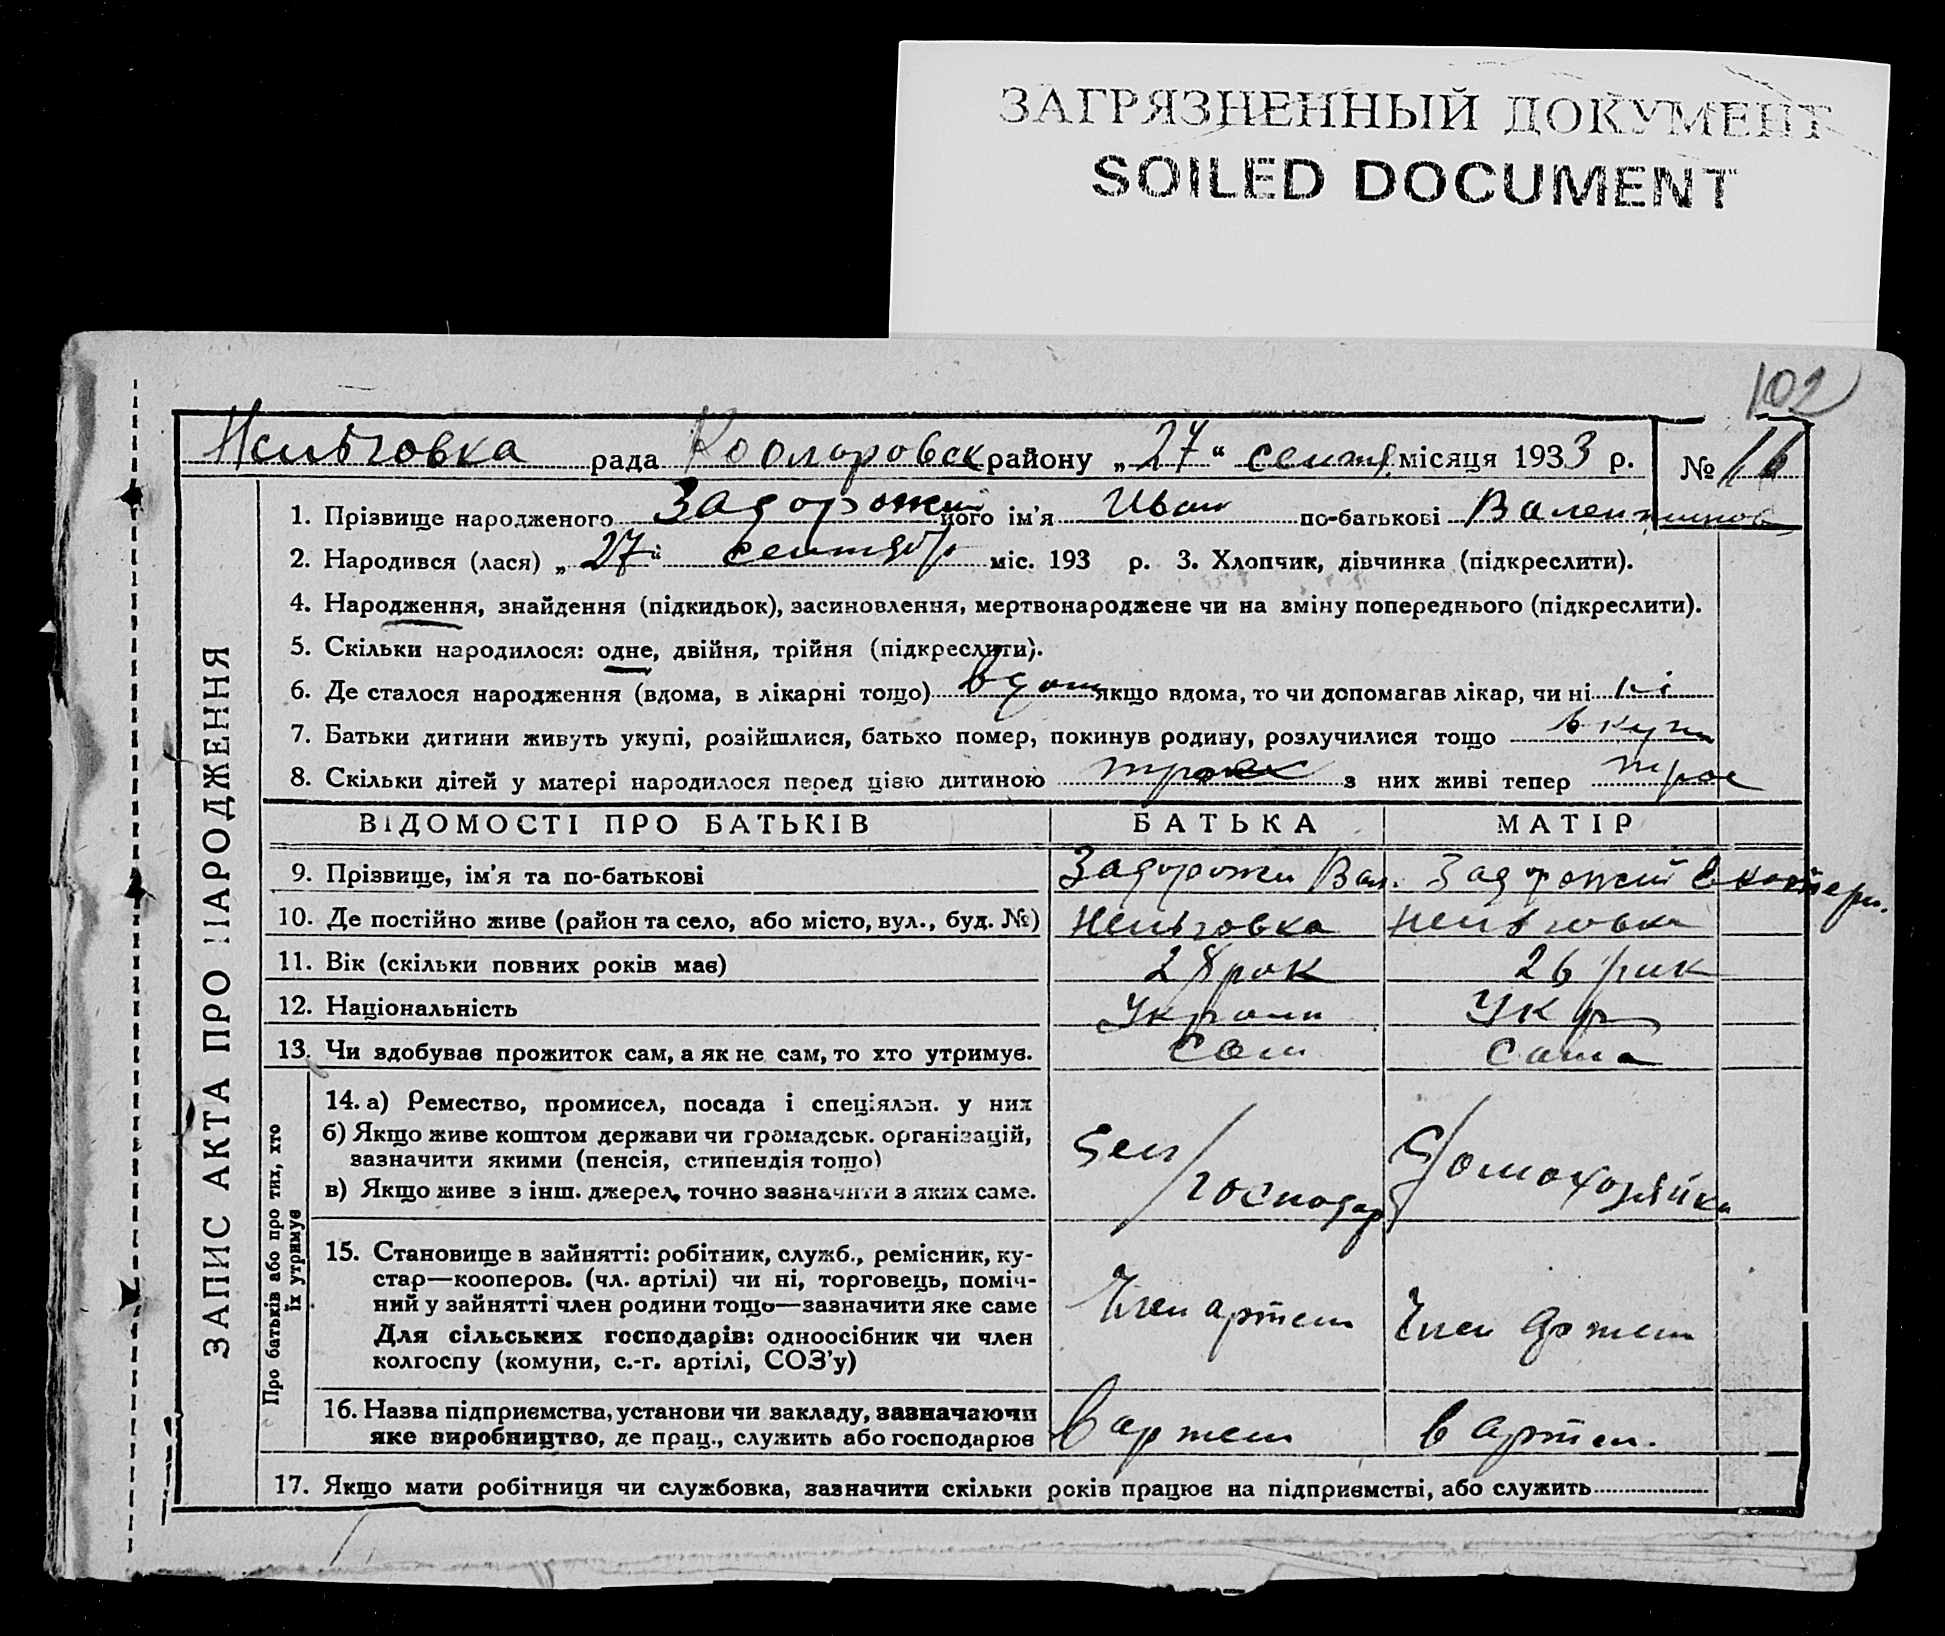 ЗАГРЯЗНЕННЫЙ ДОКУМЕНТ
SOILED DOCUMENT
102
Нельговка рада района району „27“ сентя місяця 1933 р. №
1. Прізвище народженого Задорожий його ім'я Иван по-батькові Валентинов
2. Народився (лася) „27“ сентябр міс. 193 р. 3. Хлопчик, дівчинка (підкреслити).
4. Народження, знайдення (підкидьок), засиновлення, мертвонароджене чи на зміну попереднього (підкреслити).
5. Скільки народилося: одне, двійня, трійня (підкреслити).
6. Де сталося народження (вдома, в лікарні тощо) вдома якщо вдома, то чи допомагав лікар, чи ні ні
7. Батьки дитини живуть укупі, розійшлися, батько помер, покинув родину, розлучилися тощо вкупи
8. Скільки дітей у матері народилося перед цією дитиною з них живі тепер трое
ВІДОМОСТІ ПРО БАТЬКІВ БАТЬКА МАТІР
9. Прізвище, ім'я та по-батькові Задорожи Вал. Задорожий Екатери.
10. Де постійно живе (район та село, або місто, вул., буд. №) Нельговка Нельговка
11. Вік (скільки повних років має) 28 рок 26 рик
12. Національність Украин Укр
13. Чи здобував прожиток сам, а як не сам, то хто утримує. Сам Сама
14. а) Ремество, промисел, посада і спеціяльн. у них
б) Якщо живе коштом держави чи громадськ. організацій,
зазначити якими (пенсія, стипендія тощо)
в) Якщо живе з інш. джерел, точно зазначити з яких саме.
господар Домохозяйка
15. Становище в зайнятті: робітник, служб., ремісник, ку-
стар—кооперов. (чл. артілі) чи ні, торговець, поміч-
ний у зайнятті член родини тощо—зазначити яке саме
Для сільських господарів: одноосібник чи член
колгоспу (комуни, с.-г. артілі, СОЗ'у)
Член артели Член артели
16. Назва підприємства, установи чи закладу, зазначаючи
яке виробництво, де прац., служить або господарює
в артели в артел.
17. Якщо мати робітниця чи службовка, зазначити скільки років працює на підприємстві, або служить
ЗАПИС АКТА ПРО НАРОДЖЕННЯ
Про батьків або про тих, хто
їх утримує